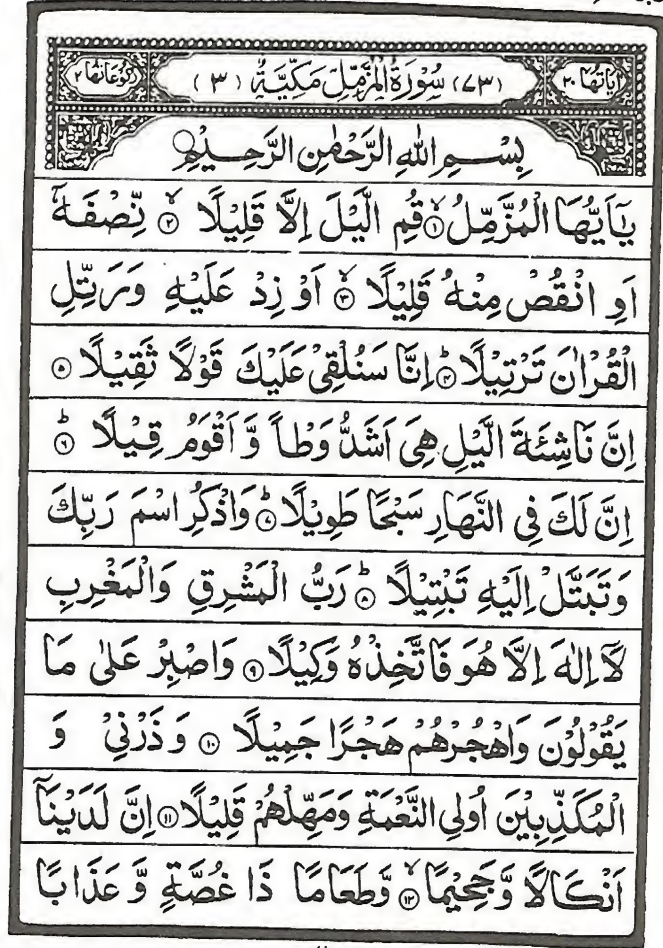 اٰيَاتُهَا ٢٠ (٧٣) سُوْرَةُ الْمُزَّمِّلِ مَكِّيَّةٌ (٣) رُكُوْعَاتُهَا ٢
بِسْمِ اللّٰهِ الرَّحْمٰنِ الرَّحِيْمِ
يٰٓاَيُّهَا الْمُزَّمِّلُ ۙ‏﴿۱﴾ قُمِ الَّيْلَ اِلَّا قَلِيْلًا ۙ‏﴿۲﴾ نِّصْفَهٗٓ
اَوِ انْقُصْ مِنْهُ قَلِيْلًا ۙ‏﴿۳﴾ اَوْ زِدْ عَلَيْهِ وَرَتِّلِ
الْقُرْاٰنَ تَرْتِيْلًا ؕ‏﴿۴﴾ اِنَّا سَنُلْقِيْ عَلَيْكَ قَوْلًا ثَقِيْلًا ﴿۵﴾
اِنَّ نَاشِئَةَ الَّيْلِ هِيَ اَشَدُّ وَطْاً وَّاَقْوَمُ قِيْلًا ؕ‏﴿۶﴾
اِنَّ لَكَ فِي النَّهَارِ سَبْحًا طَوِيْلًا ؕ‏﴿۷﴾ وَاذْكُرِ اسْمَ رَبِّكَ
وَتَبَتَّلْ اِلَيْهِ تَبْتِيْلًا ؕ‏﴿۸﴾ رَبُّ الْمَشْرِقِ وَالْمَغْرِبِ
لَآ اِلٰهَ اِلَّا هُوَ فَاتَّخِذْهُ وَكِيْلًا ﴿۹﴾ وَاصْبِرْ عَلٰى مَا
يَقُوْلُوْنَ وَاهْجُرْهُمْ هَجْرًا جَمِيْلًا ﴿۱۰﴾ وَذَرْنِيْ وَ
الْمُكَذِّبِيْنَ اُولِي النَّعْمَةِ وَمَهِّلْهُمْ قَلِيْلًا ﴿۱۱﴾ اِنَّ لَدَيْنَآ
اَنْكَالًا وَّجَحِيْمًا ۙ‏﴿۱۲﴾ وَّطَعَامًا ذَا غُصَّةٍ وَّعَذَابًا